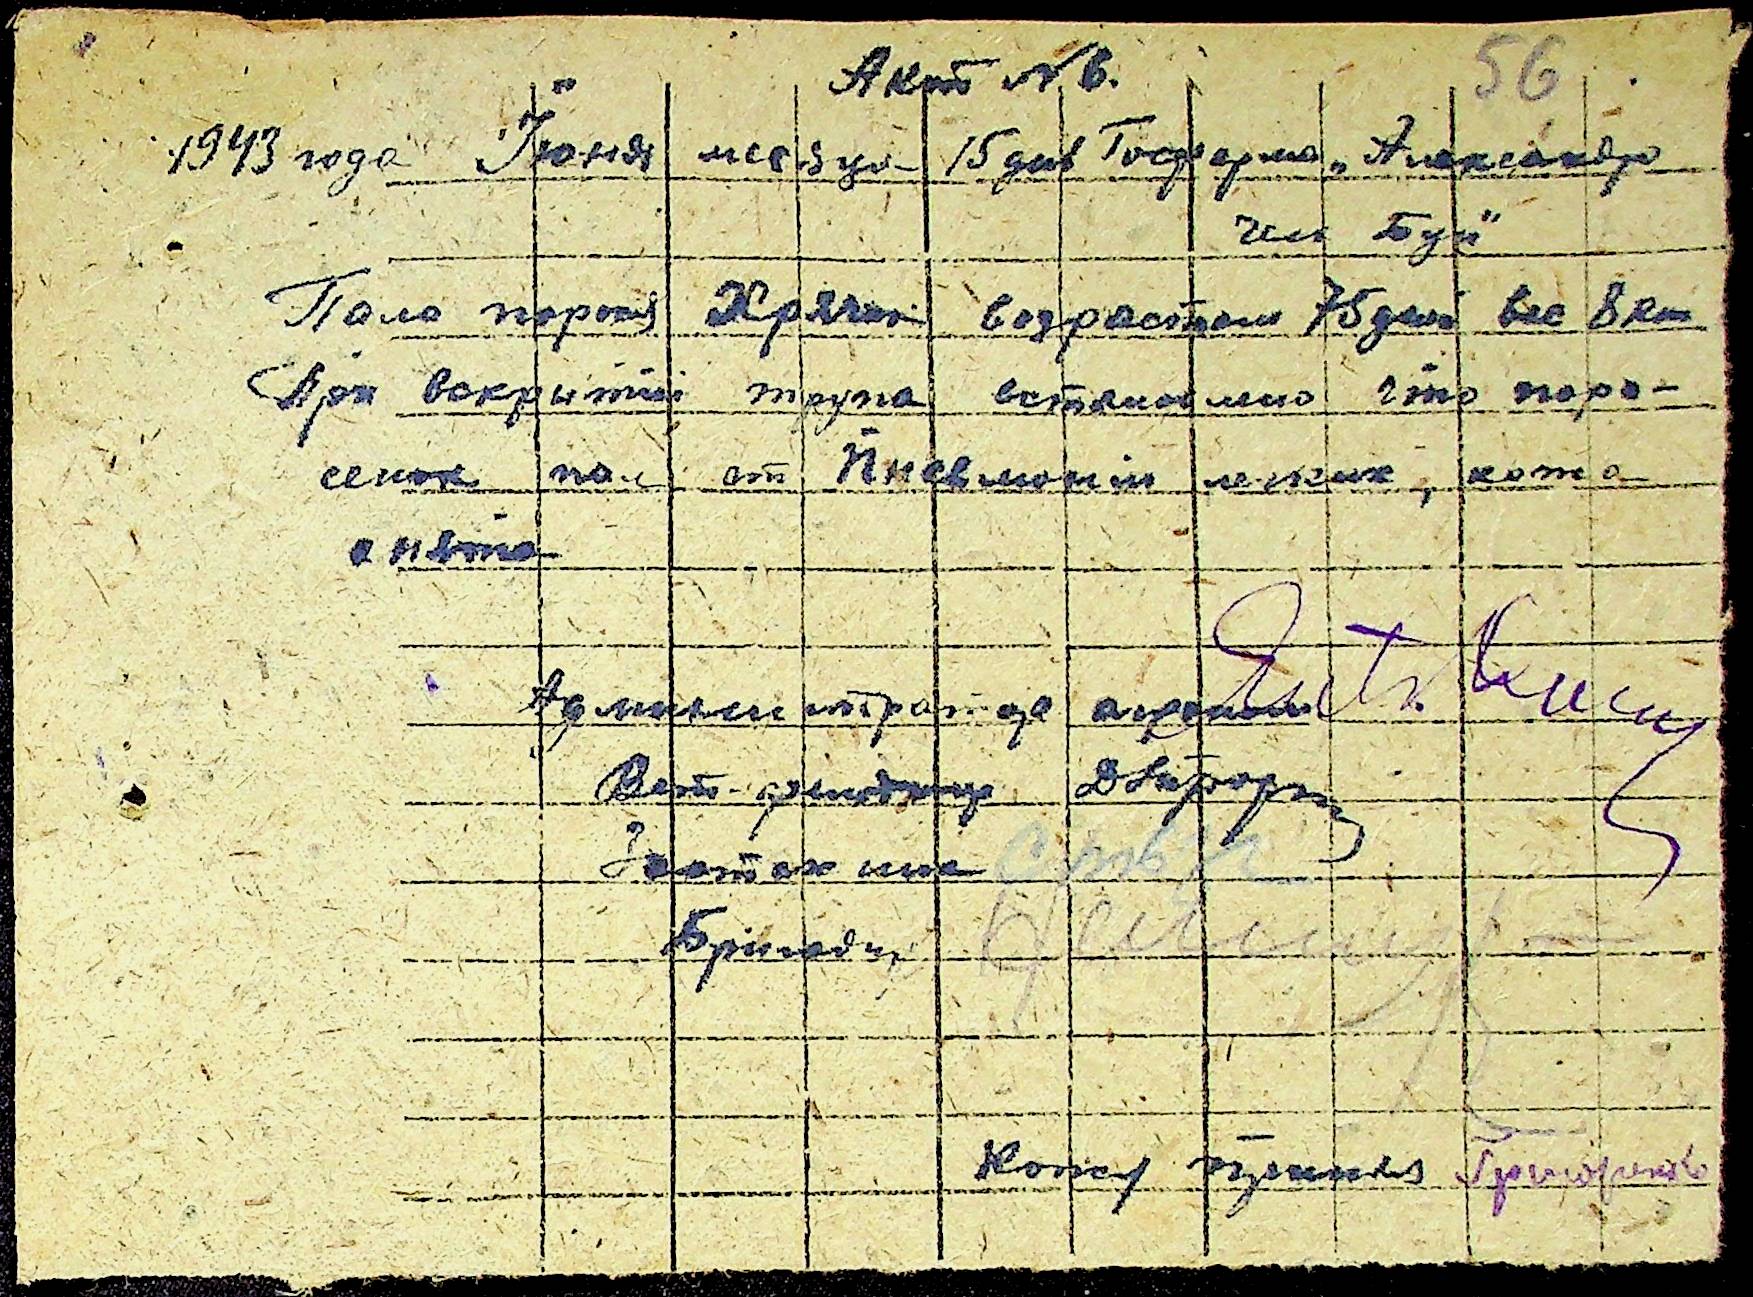 56
Акт № 6.
1943 года Июня месяца 15 дня Госферма „Александр
чен Буй"
Пало порося Хрячок возрастом 75 дней вес 8 кг
При вскрытии трупа встановлено что поро-
сенок пал от Пневмонии легких, кожа
снята
Администратор
Вет-фельдшер
Зоотехник
Бригадир
Кожу принял Григоренко